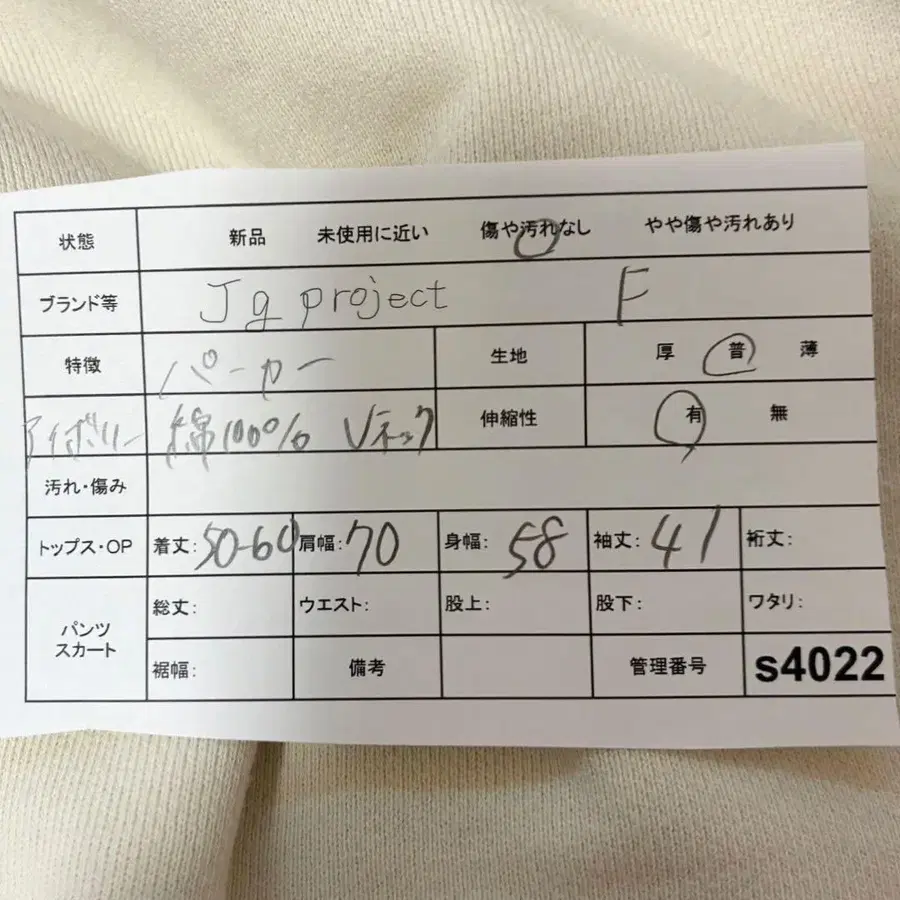 状態 新品 未使用に近い 傷や汚れなし やや傷や汚れあり
ブランド等 Jg project F
特徴 パーカー 生地 厚 普 薄
アイボリー 綿100% Vネック 伸縮性 有 無
汚れ・傷み
トップス・OP 着丈: 50-60 肩幅: 70 身幅: 58 袖丈: 41 裄丈:
パンツ スカート 総丈: ウエスト: 股上: 股下: ワタリ:
裾幅: 備考 管理番号 s4022